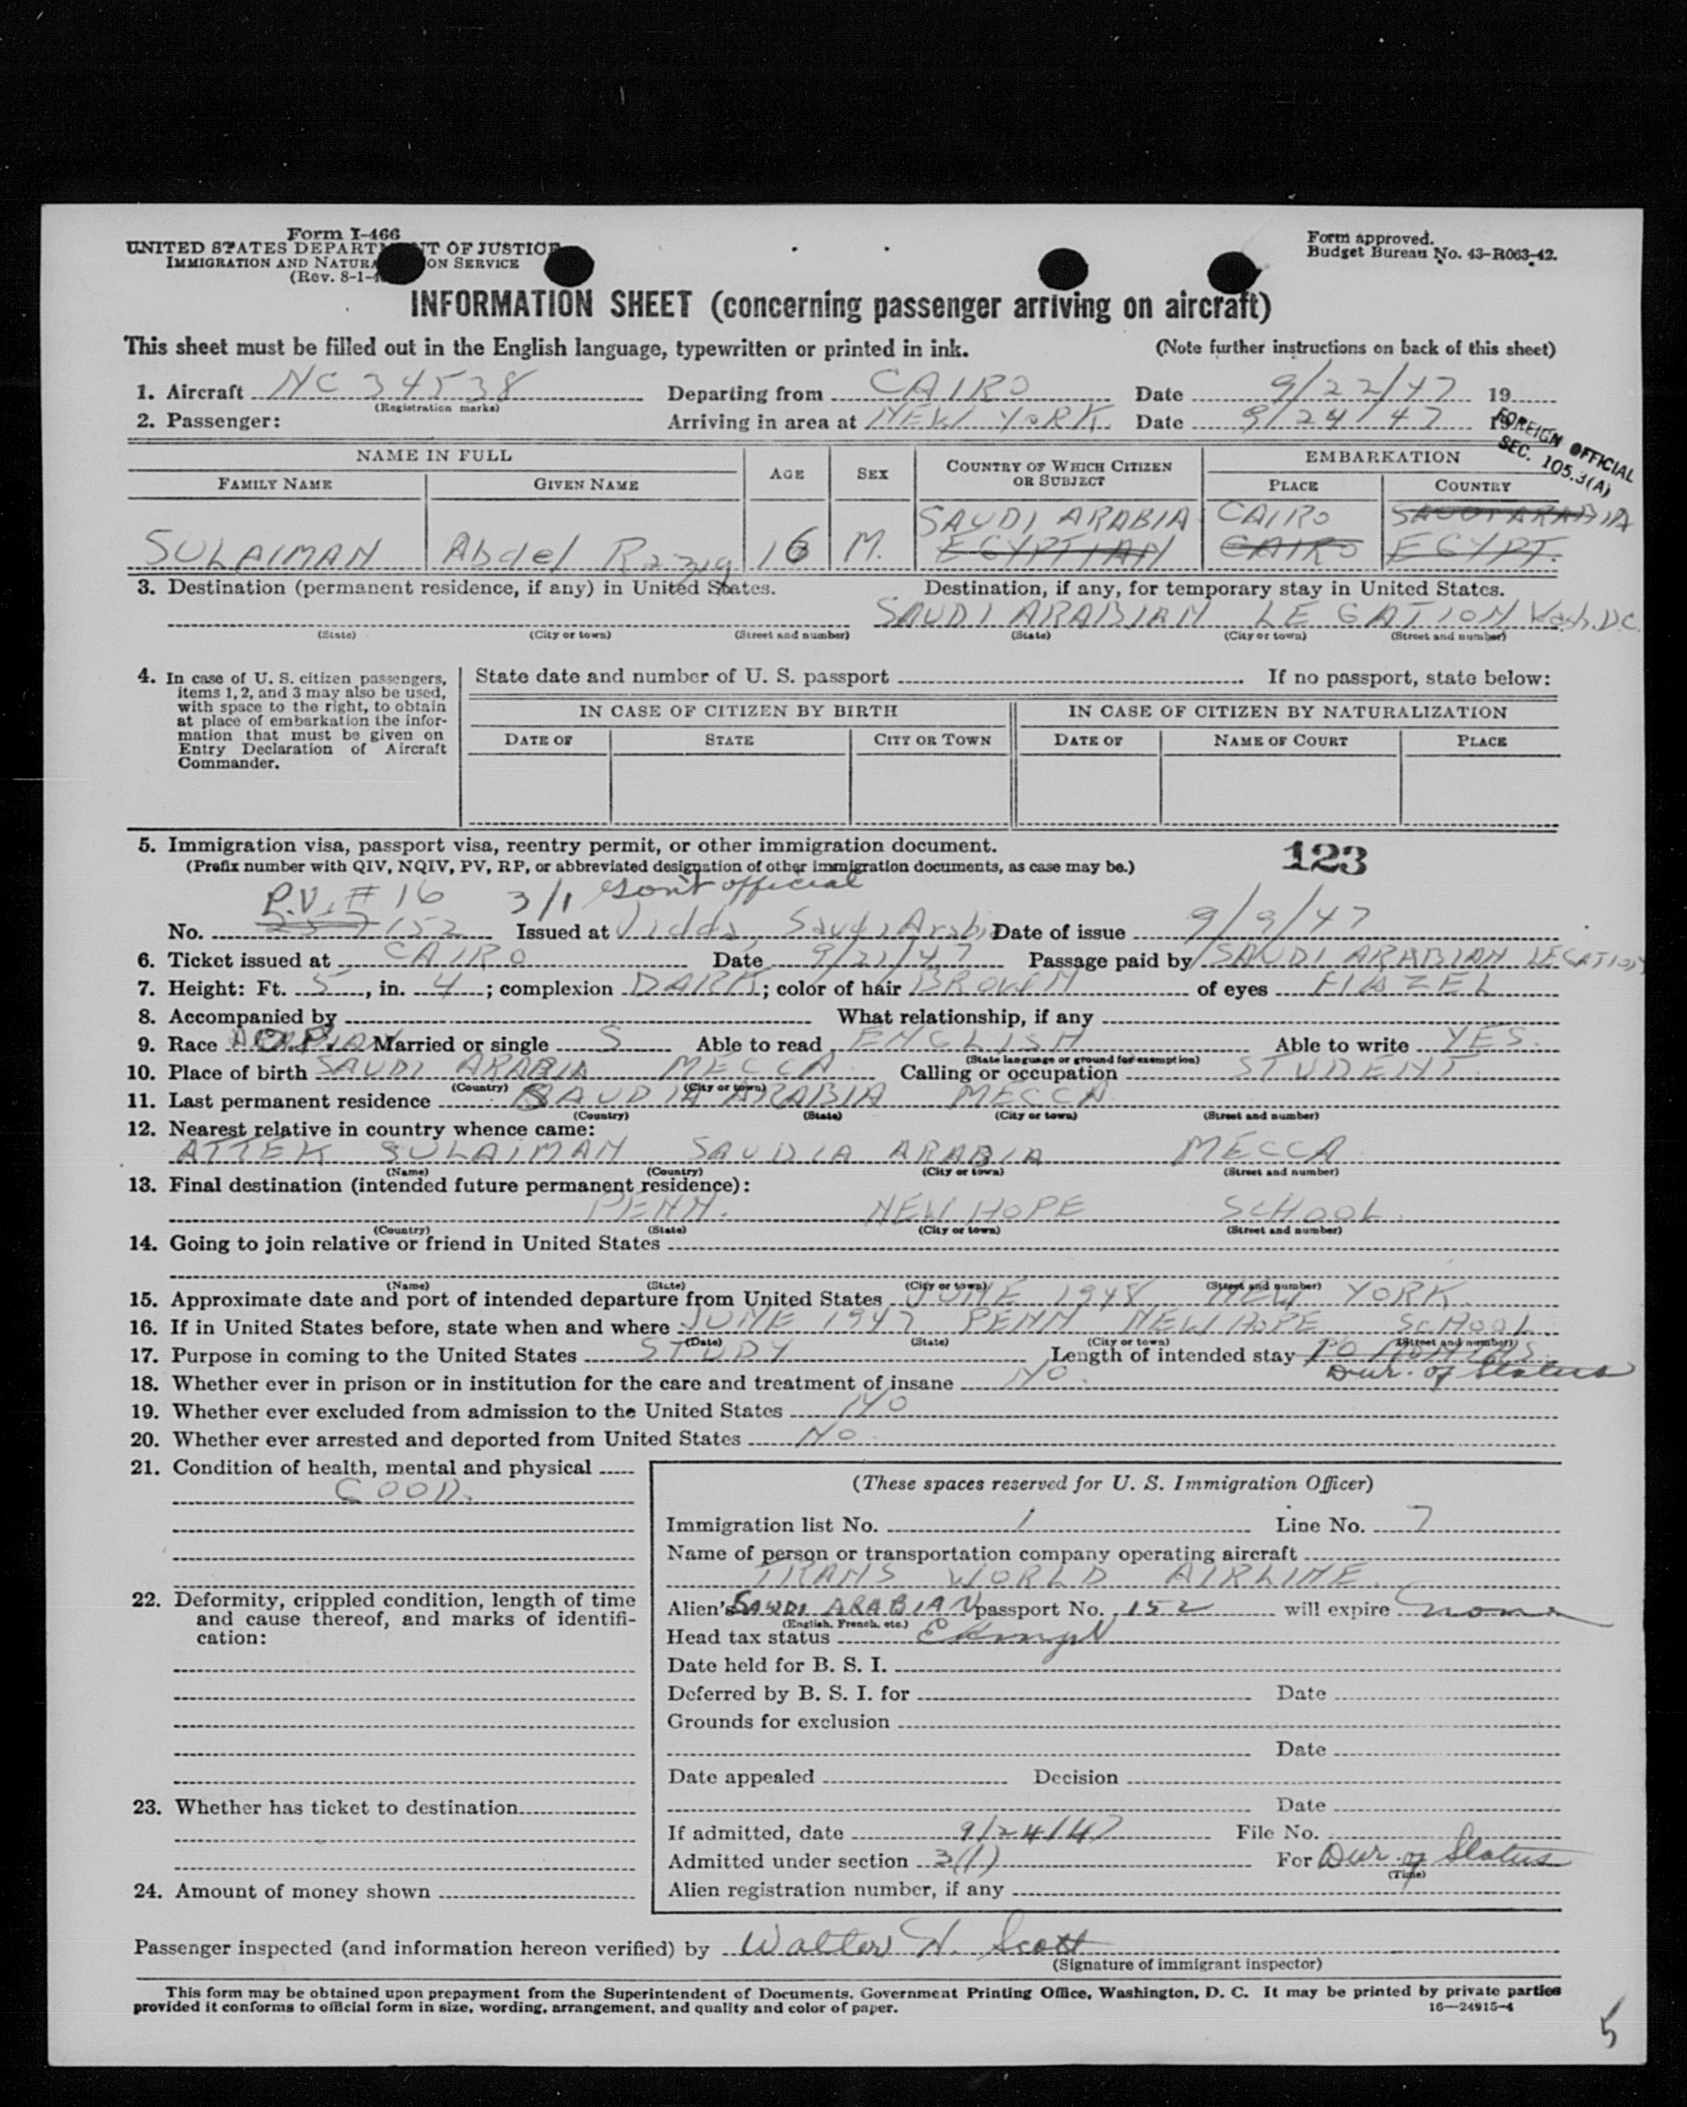 Form I-466
UNITED STATES DEPARTMENT OF JUSTICE
IMMIGRATION AND NATURALIZATION SERVICE
(Rev. 8-1-4
Form approved.
Budget Bureau No. 43-R063-42.
INFORMATION SHEET (concerning passenger arriving on aircraft)
This sheet must be filled out in the English language, typewritten or printed in ink. (Note further instructions on back of this sheet)
1. Aircraft NC 34538 Departing from CAIRO Date 9/22/47 19
(Registration marks)
2. Passenger: Arriving in area at NEW YORK Date 9/24/47 19
FOREIGN OFFICIAL
SEC. 105.3(A)
NAME IN FULL AGE SEX COUNTRY OF WHICH CITIZEN OR SUBJECT EMBARKATION
FAMILY NAME GIVEN NAME PLACE COUNTRY
SAUDI ARABIA CAIRO SAUDI ARABIA
SULAIMAN Abdel Razig 16 M. EGYPTIAN CAIRO EGYPT.
3. Destination (permanent residence, if any) in United States. Destination, if any, for temporary stay in United States.
SAUDI ARABIAN LEGATION Wash. D.C.
(State) (City or town) (Street and number) (State) (City or town) (Street and number)
4. In case of U. S. citizen passengers, items 1, 2, and 3 may also be used, with space to the right, to obtain at place of embarkation the information that must be given on Entry Declaration of Aircraft Commander.
State date and number of U. S. passport If no passport, state below:
IN CASE OF CITIZEN BY BIRTH IN CASE OF CITIZEN BY NATURALIZATION
DATE OF STATE CITY OR TOWN DATE OF NAME OF COURT PLACE
5. Immigration visa, passport visa, reentry permit, or other immigration document. 123
(Prefix number with QIV, NQIV, PV, RP, or abbreviated designation of other immigration documents, as case may be.)
P.V. # 16 3/1 Gov't official
No. 152 Issued at Jidda, Saudi Arabia Date of issue 9/9/47
6. Ticket issued at CAIRO Date 9/21/47 Passage paid by SAUDI ARABIAN LEGATION
7. Height: Ft. 5, in. 4; complexion DARK; color of hair BROWN of eyes HAZEL
8. Accompanied by What relationship, if any
9. Race ARABIAN Married or single S Able to read ENGLISH Able to write YES.
(State language or ground for exemption)
10. Place of birth SAUDI ARABIA MECCA Calling or occupation STUDENT.
(Country) (City or town)
11. Last permanent residence SAUDIA ARABIA MECCA
(Country) (State) (City or town) (Street and number)
12. Nearest relative in country whence came:
ATTEK SULAIMAN SAUDIA ARABIA MECCA
(Name) (Country) (City or town) (Street and number)
13. Final destination (intended future permanent residence):
PENN. NEW HOPE SCHOOL.
(Country) (State) (City or town) (Street and number)
14. Going to join relative or friend in United States
(Name) (State) (City or town) (Street and number)
15. Approximate date and port of intended departure from United States JUNE 1948 NEW YORK.
16. If in United States before, state when and where JUNE 1947 PENN NEW HOPE SCHOOL.
(Date) (State) (City or town) (Street and number)
17. Purpose in coming to the United States STUDY Length of intended stay 10 MONTHS.
Dur. of Status
18. Whether ever in prison or in institution for the care and treatment of insane NO.
19. Whether ever excluded from admission to the United States NO
20. Whether ever arrested and deported from United States NO.
21. Condition of health, mental and physical
GOOD.
22. Deformity, crippled condition, length of time and cause thereof, and marks of identification:
23. Whether has ticket to destination
24. Amount of money shown
(These spaces reserved for U. S. Immigration Officer)
Immigration list No. 1 Line No. 7
Name of person or transportation company operating aircraft
TRANS WORLD AIRLINE.
Alien's SAUDI ARABIAN passport No. 152 will expire none
(English, French, etc.)
Head tax status Exempt
Date held for B. S. I.
Deferred by B. S. I. for Date
Grounds for exclusion
Date
Date appealed Decision
Date
If admitted, date 9/24/47 File No.
Admitted under section 3(1) For Dur. of Status
(Time)
Alien registration number, if any
Passenger inspected (and information hereon verified) by Walter N. Scott
(Signature of immigrant inspector)
This form may be obtained upon prepayment from the Superintendent of Documents, Government Printing Office, Washington, D. C. It may be printed by private parties
provided it conforms to official form in size, wording, arrangement, and quality and color of paper. 16—24915-4
5